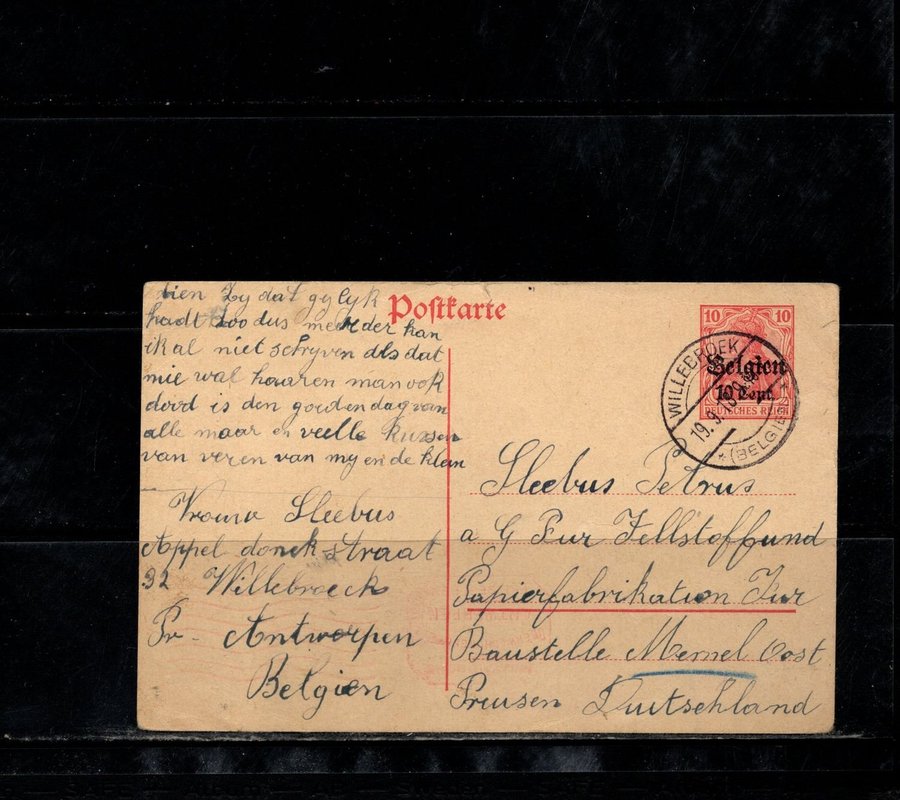 Postkarte
10 10
Belgien
10 Cent.
DEUTSCHES REICH
WILLEBROEK
19.9.
(BELGIEN)
zien Zy dat gy lyk
hadt Zoo dus meer der kan
ik al niet schryven als dat
mie wal haaren man ook
dood is den goeden dag van
alle maar en veelle kussen
van veren van my en de klein
Vrouw Sleebus
Appel donck straat
32 Willebroeck
Pr- Antwerpen
Belgien
Sleebus Petrus
a G Fur Zellstoffund
Papierfabrikation Fur
Baustelle Memel Oost
Preusen Duitschland